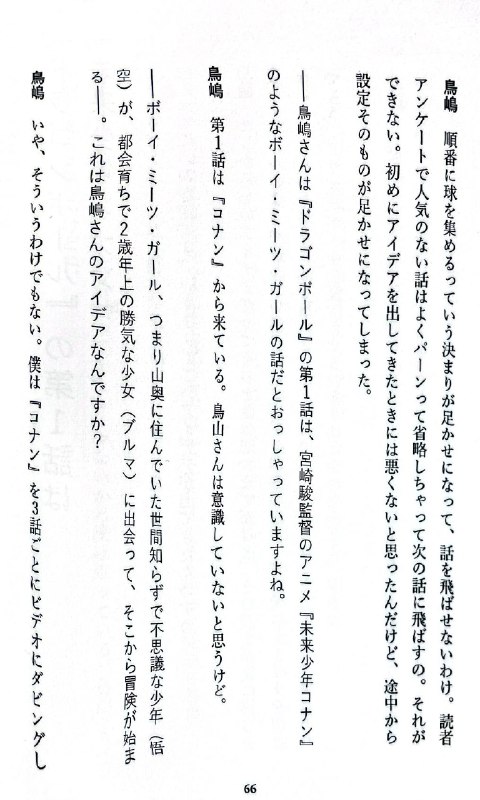 鳥嶋　順番に球を集めるっていう決まりが足かせになって、話を飛ばせないわけ。読者
アンケートで人気のない話はよくパーンって省略しちゃって次の話に飛ばすの。それが
できない。初めにアイデアを出してきたときには悪くないと思ったんだけど、途中から
設定そのものが足かせになってしまった。
――鳥嶋さんは『ドラゴンボール』の第1話は、宮崎駿監督のアニメ『未来少年コナン』
のようなボーイ・ミーツ・ガールの話だとおっしゃっていますよね。
鳥嶋　第1話は『コナン』から来ている。鳥山さんは意識していないと思うけど。
――ボーイ・ミーツ・ガール、つまり山奥に住んでいた世間知らずで不思議な少年（悟
空）が、都会育ちで2歳年上の勝気な少女（ブルマ）に出会って、そこから冒険が始ま
る――。これは鳥嶋さんのアイデアなんですか？
鳥嶋　いや、そういうわけでもない。僕は『コナン』を3話ごとにビデオにダビングし
66